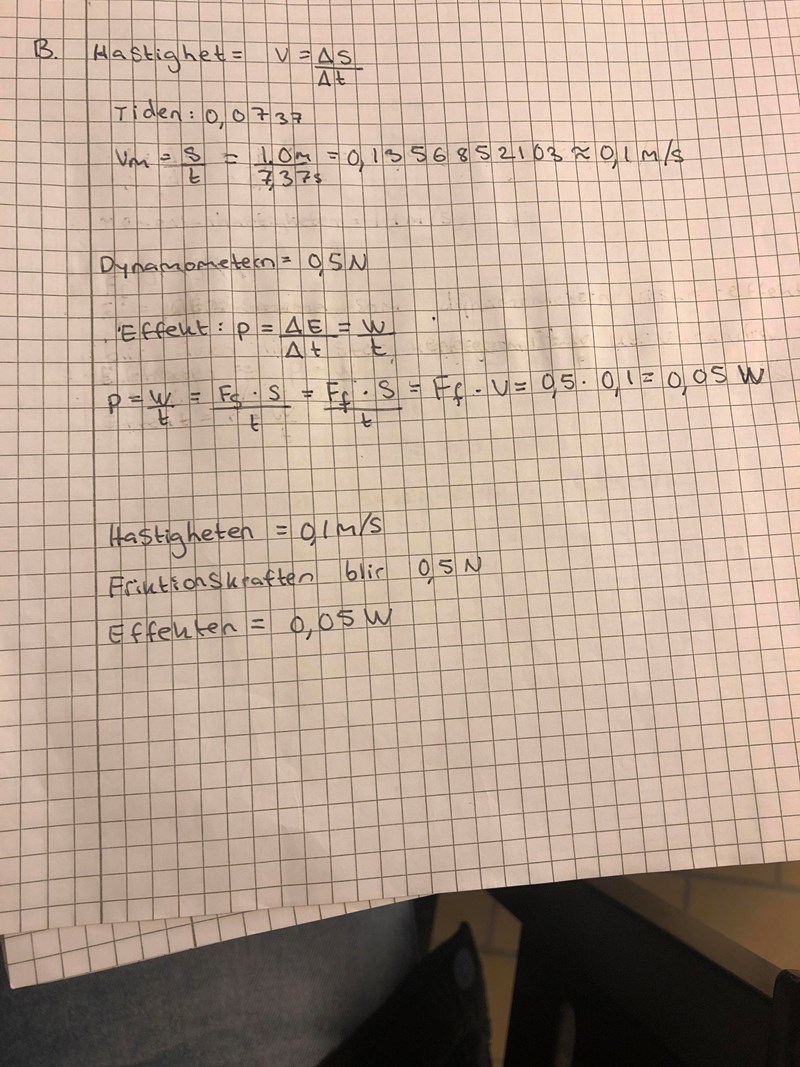 B. Hastighet = V = ΔS/Δt
Tiden: 0,0737
Vm = S/t = 1,0m/7,37s = 0,1356852103 ≈ 0,1 m/s
Dynamometern = 0,5N
Effekt: P = ΔE/Δt = W/t
P = W/t = Ff · S/t = Ff · S/t = Ff · V = 0,5 · 0,1 = 0,05 W
Hastigheten = 0,1 m/S
Friktionskraften blir 0,5 N
Effekten = 0,05 W